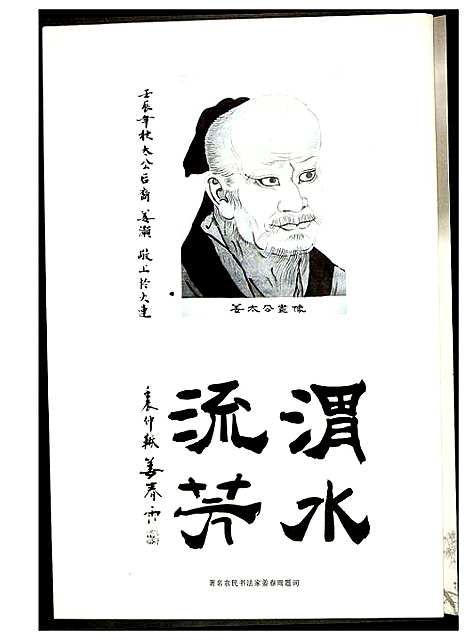 壬辰年秋太公后裔 姜 敬上於大连
姜太公畫像
渭水
流芳
姜春雨
著名农民书法家姜春雨题词